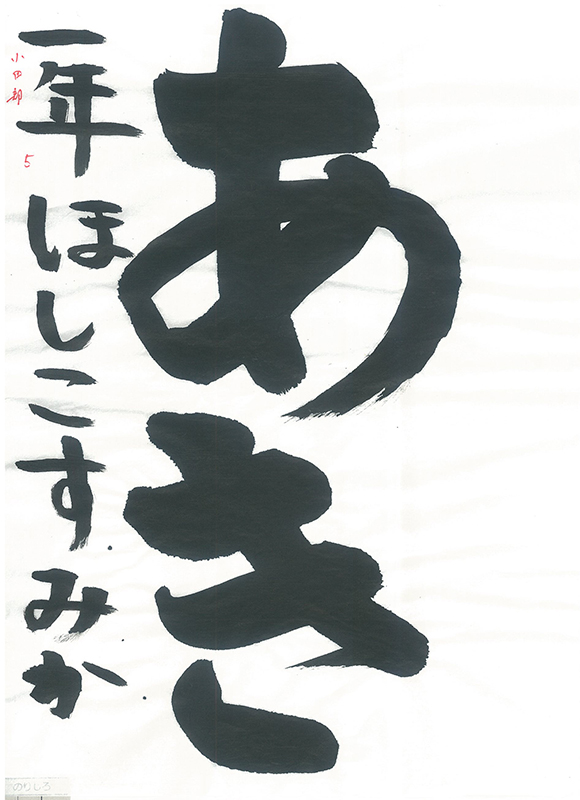 あき
一年 ほしこ すみか
小田部 5
のりしろ